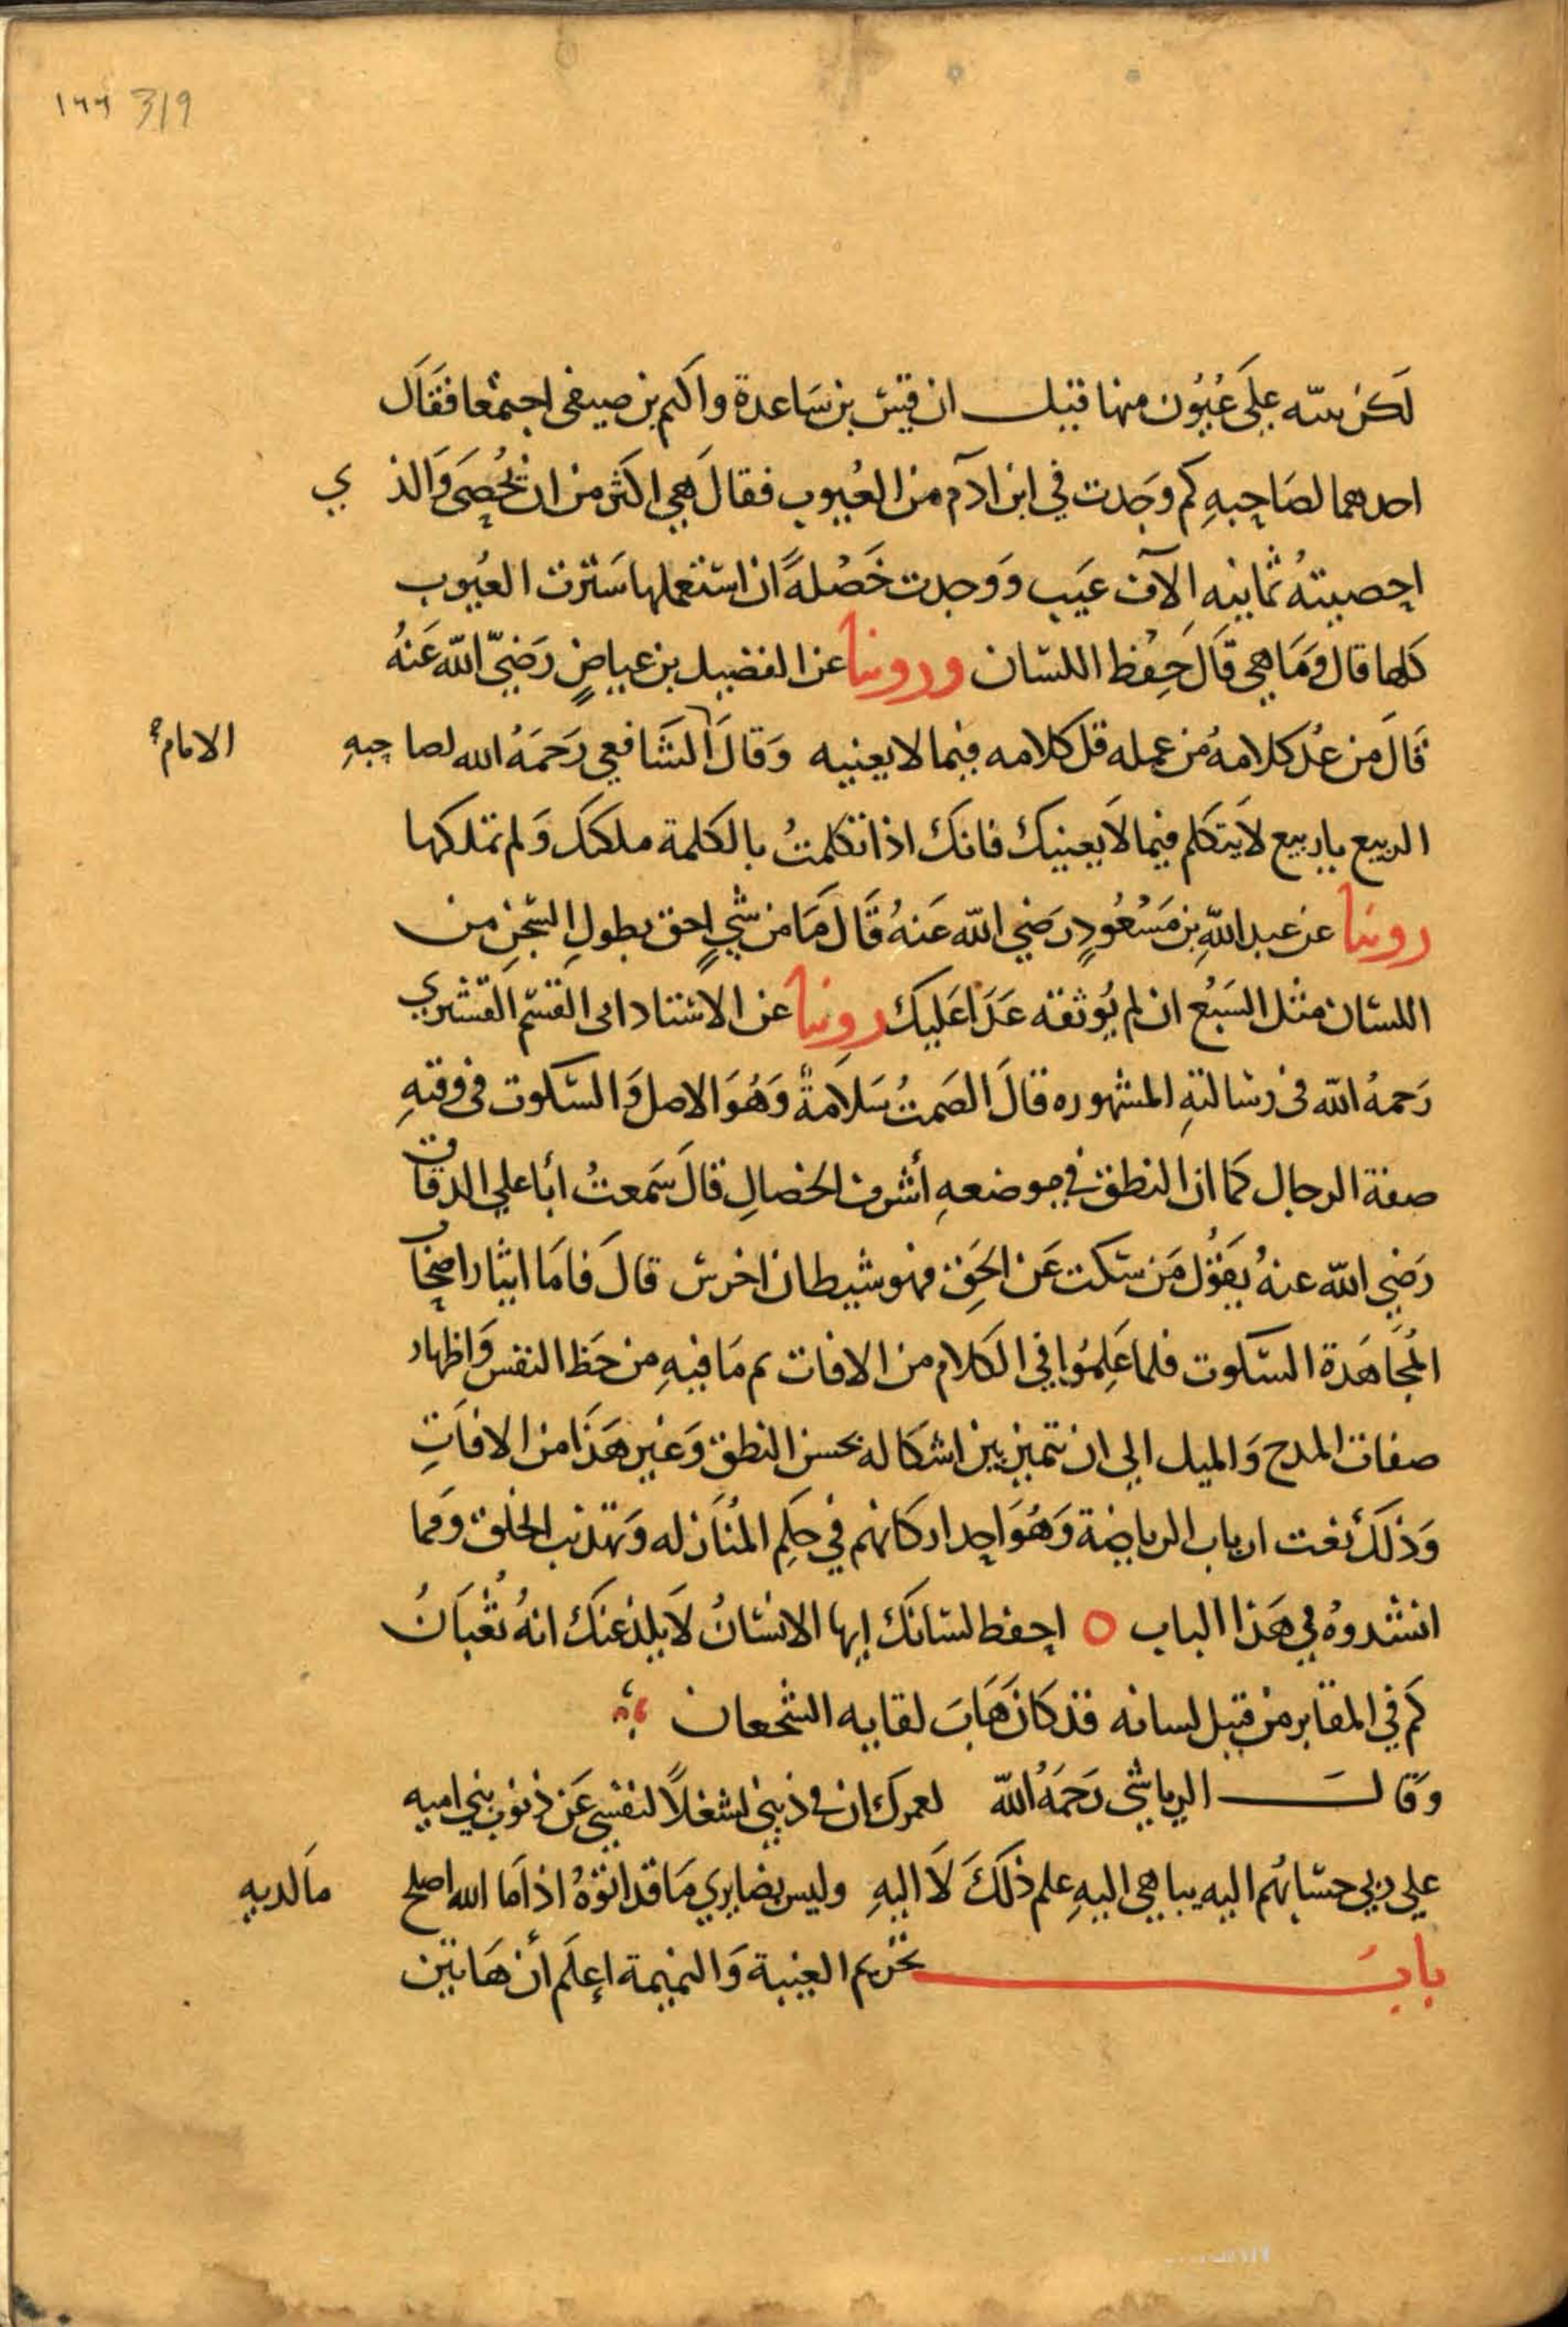 ١٦٦ 319
لكن ننبه على عُيُون منها قيل ان قيس بن سَاعدة واكثم بن صيفي اجتمعا فقال
احدهما لصَاحِبهِ كَم وَجَدت في ابن ادَم من العُيوب فقالَ هِي اكثر من ان تُحصَى وَالذي
احصيتهُ ثمانيه الآف عَيب وَوجدت خَصْلةً ان استعملها سَترت العُيوب
كلها قال وَمَا هي قالَ حِفْظ اللسَان وروينا عن الفضيل بن عياضٍ رَضيَ الله عَنهُ
قَالَ مَن عَدّ كلامهُ من عمله قل كلامه فيما لا يعنيه وَقالَ الشَافعي رَحمَهُ الله لصاحِبهِ
الامام
الربيع ياربيع لا يَتكلم فيما لا يَعنيكَ فانكَ اذا تكلمتُ بالكلمة ملكتكَ وَلم تملكها
روينا عن عبد اللهِ بن مَسْعُودٍ رَضي الله عَنهُ قَالَ مَا من شيٍ احق بطولِ السّجنِ من
اللسَان مثل السَبُع ان لم يُوثقه عَدَا عَليكَ روينا عن الاستاد ابى القسم القشَيري
رَحمهُ الله فى رسَالتهِ المشهوره قالَ الصَمتُ سَلاَمةٌ وَهُوَ الاصل وَالسكوت فى وقتهِ
صفة الرجال كما ان النطق في موضعهِ أشرف الخصالِ قالَ سَمعتُ أبا علي الدقاق
رَضِي الله عنهُ يَقُوُل مَن سَكت عَن الحَقِ فهو شيطان اخرسَ قالَ فامَا ايثار اصحاب
المُجَاهَدة السَكوت فلما عَلِمُوا في الكلام من الافات ثم مَا فيهِ من حَظ النفس وَاظهار
صفات المدح وَالميل الي ان يتميز بين اشكاله بحسن النطق وَغير هَذَا من الافَاتِ
وَذلكَ نعت ارباب الرياضة وَهُوَ احد اركانهم في حكِم المُنَازله وَتهذيب الخلق وَمما
انشدوهُ في هَذا الباب ○ احفظ لسَانكَ ايها الانسَانُ لا يلدغنكَ انهُ ثعْبَانُ
كَم في المقَابر من قتيل لسانه قد كانَ هَابَ لقايه الشجعان
وَقالَ الرياشي رَحمَهُ الله لعمركَ ان في ذنبي لشغلاً لنفسي عَن ذنوب بني اميه
علي ربي حسَابهُم اليه يباهى اليهِ علم ذلكَ لاَ اليهِ وليس بضايري مَا قد اتوهُ اذا مَا الله اصلح مَا لديهِ
بابَ تحْريم الغيبة وَالنميمة اِعلَم أن هَاتين